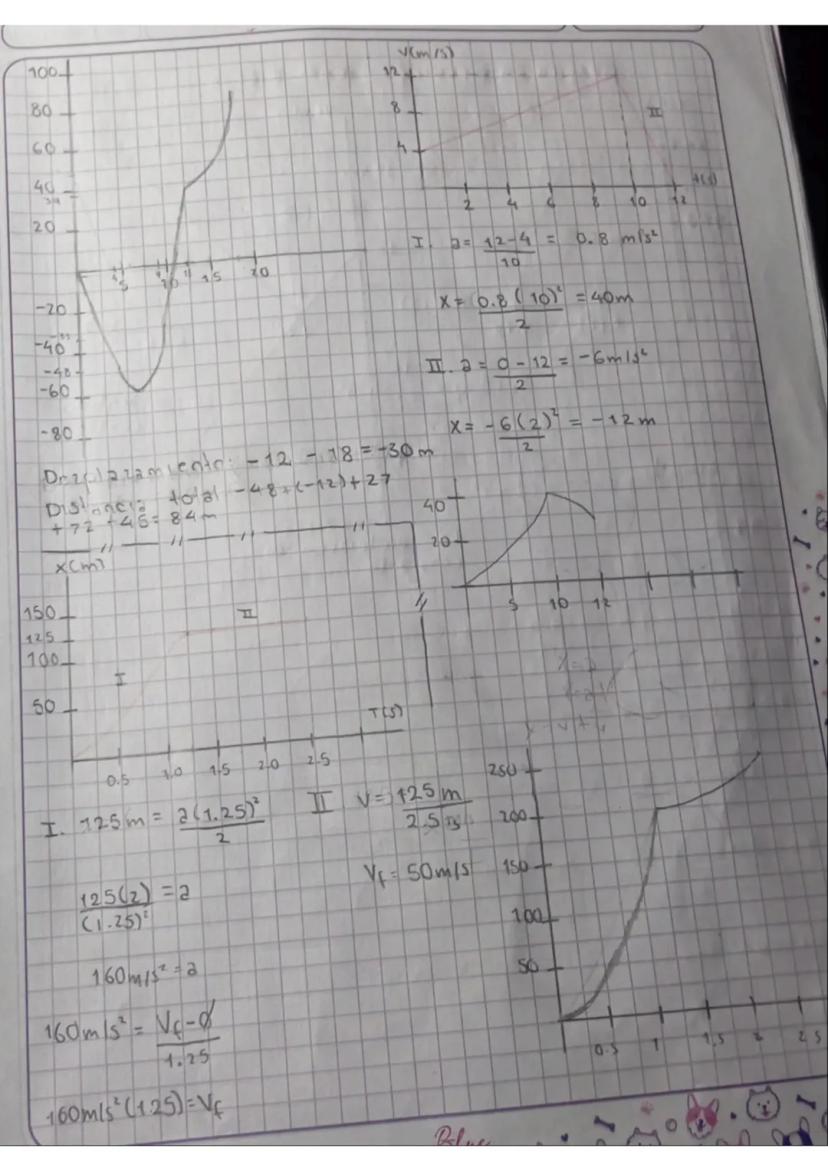 100
80
60
40
20
5 10 15 20
-20
-40
-48
-60
-80
V(m/s)
12
8
4
II
2 4 6 8 10 12
I. a = 12-4 / 10 = 0.8 m/s²
x = 0.8(10)² / 2 = 40m
II. a = 0-12 / 2 = -6m/s²
x = -6(2)² / 2 = -12m
Desplazamiento: -12 -18 = -30m
Distancia total -48+(-12)+27
+72+45= 84m
40
20
5 10 12
x(m)
150
125
100
50
I
II
T(s)
0.5 1.0 1.5 2.0 2.5
I. 125m = a(1.25)² / 2
125(2) / (1.25)² = a
160m/s² = a
160m/s² = Vf-0 / 1.25
160m/s²(1.25)=Vf
II V = 125m / 2.5 s
Vf = 50m/s
250
200
150
100
50
0.5 1 1.5 2 2.5